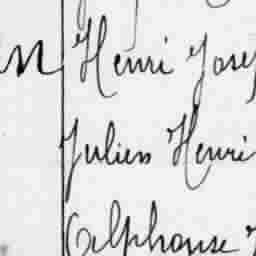 Henri Jose
Julien Henri
Alphonse